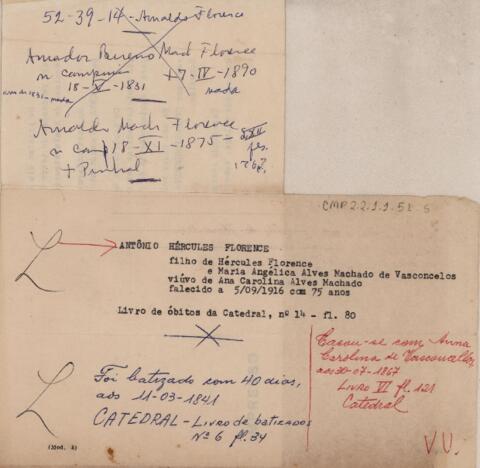 52-39-14-Arnaldo Florence
Amador Bueno Mach Florence
n campinas +7-IV-1890
18-X-1831 nada
ano de 1831-nada
Arnaldo Mach Florence
n camp 18-XI-1875-
fls.
+ Pinhal
CMP 2.2.1.1.
ANTÔNIO HÉRCULES FLORENCE
filho de Hércules Florence
e Maria Angélica Alves Machado de Vasconcelos
viúvo de Ana Carolina Alves Machado
falecido a 5/09/1916 com 75 anos
Livro de óbitos da Catedral, nº 14 - fl. 80
Casou-se com Anna
Carolina de Vasconcellos
aos 30-07-1867
LIVRO VI fl. 121
Catedral
Foi batizado com 40 dias,
aos 11-03-1841
CATEDRAL-Livro de batizados
Nº 6 fl. 34
V.V.
(Mod. A)